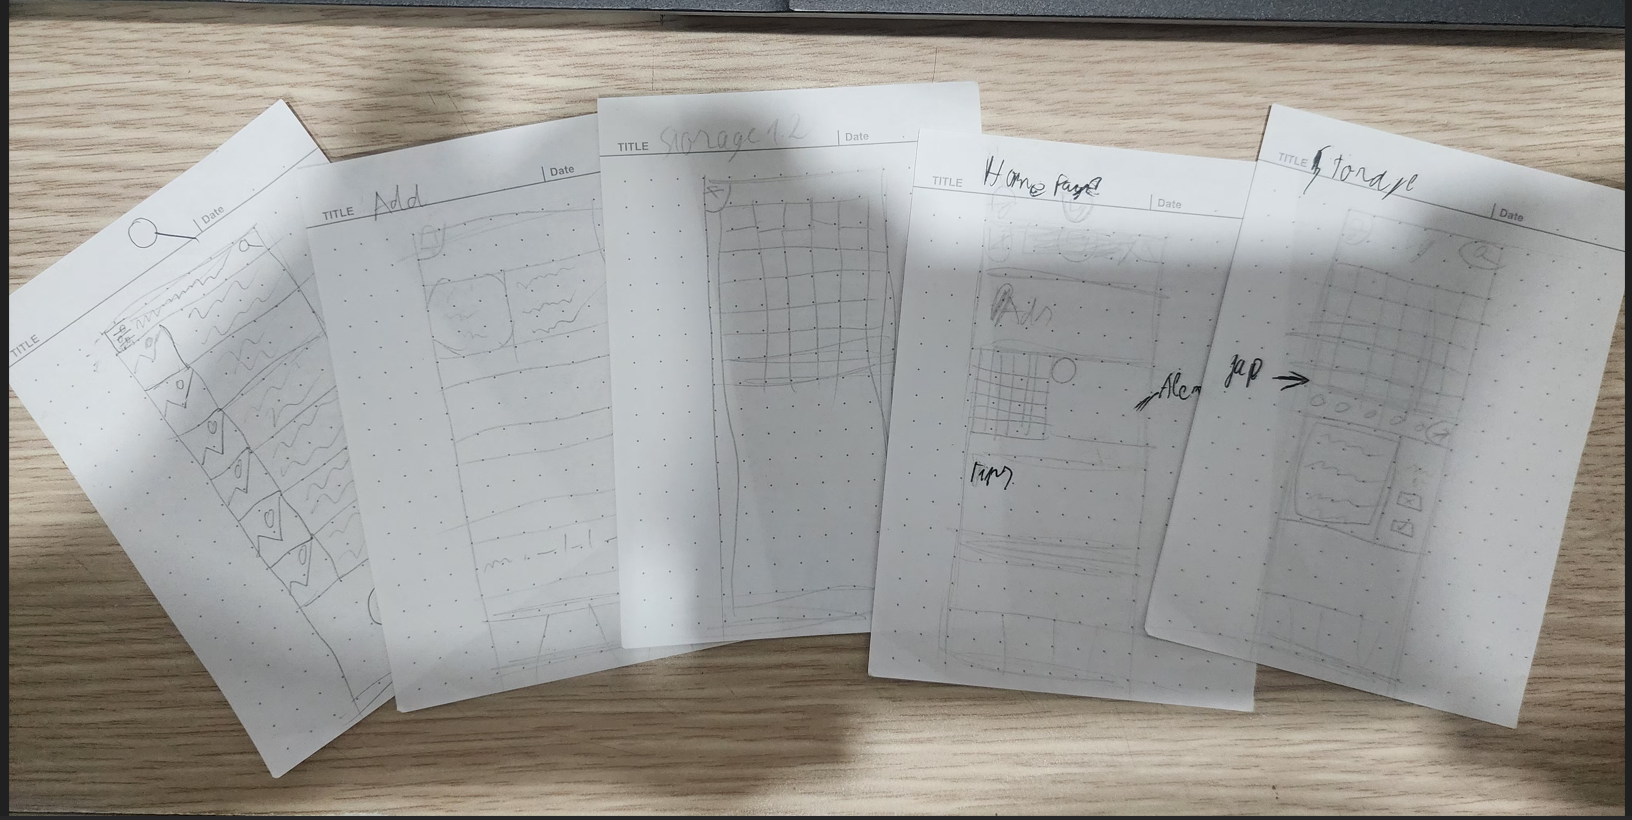 TITLE
Date
TITLE Add
Date
TITLE Storage 1.2
Date
TITLE Home Page
Date
Ads
TITLE Storage
Date